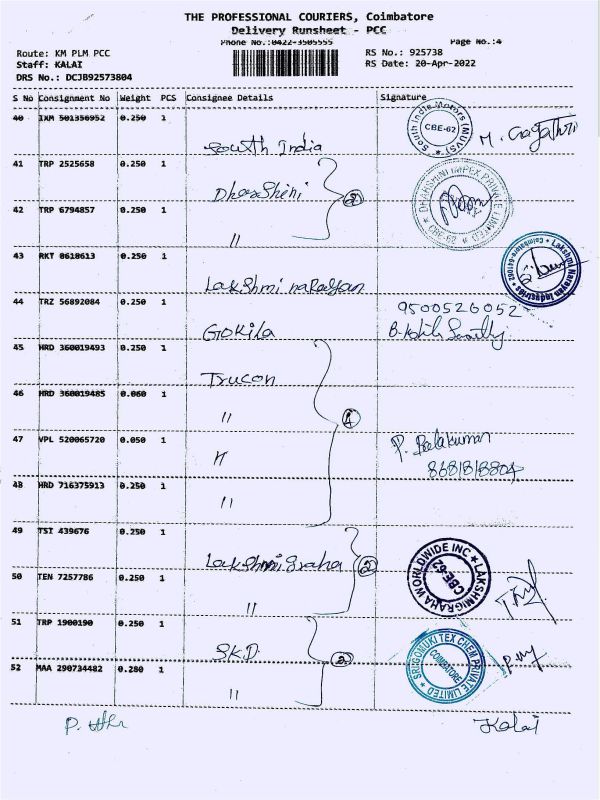 THE PROFESSIONAL COURIERS, Coimbatore
Delivery Runsheet - PCC
Phone No.:0422-3505555 Page No.:4
Route: KM PLM PCC RS No.: 925738
Staff: KALAI RS Date: 20-Apr-2022
DRS No.: DCJB92573804
S No Consignment No Weight PCS Consignee Details Signature
40 IXM 501356952 0.250 1
South India
South India Motors (MUVS) CBE-62
41 TRP 2525658 0.250 1
Dharshini 2
DHARSHINI IMPEX PRIVATE LIMITED CBE-62
42 TRP 6794857 0.250 1
"
43 RKT 8618613 0.250 1
Lakshmi naRayan
Lakshmi Narayan Industries Coimbatore-641062
44 TRZ 56892084 0.250 1
GoKila
9500526052
45 HRD 360019493 0.250 1
Trucon
46 HRD 360019485 0.060 1
" 4
47 VPL 520065720 0.050 1
"
P. Balakumar
8681818804
48 HRD 716375913 0.250 1
"
49 TSI 439676 0.250 1
Lakshmi Graha 2
LAKSHMIGRAHA WORLDWIDE INC CBE-62
50 TEN 7257786 0.250 1
"
51 TRP 1900190 0.250 1
S.K.D. 2
SRI GOMUKI TEX CHEM PRIVATE LIMITED COIMBATORE
52 MAA 290734482 0.280 1
"
Kalai